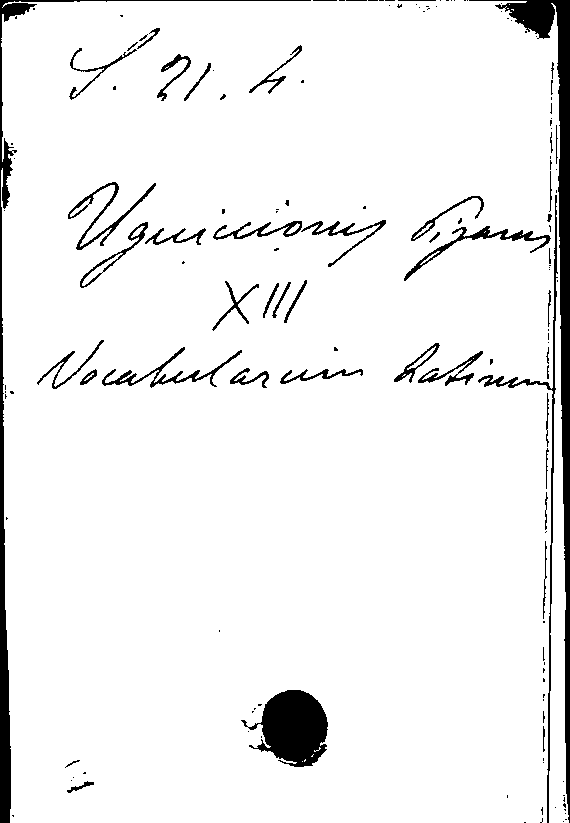 S. 21. 4.
Uguiccionis Pizanus
XIII
Vocabularium Latinum